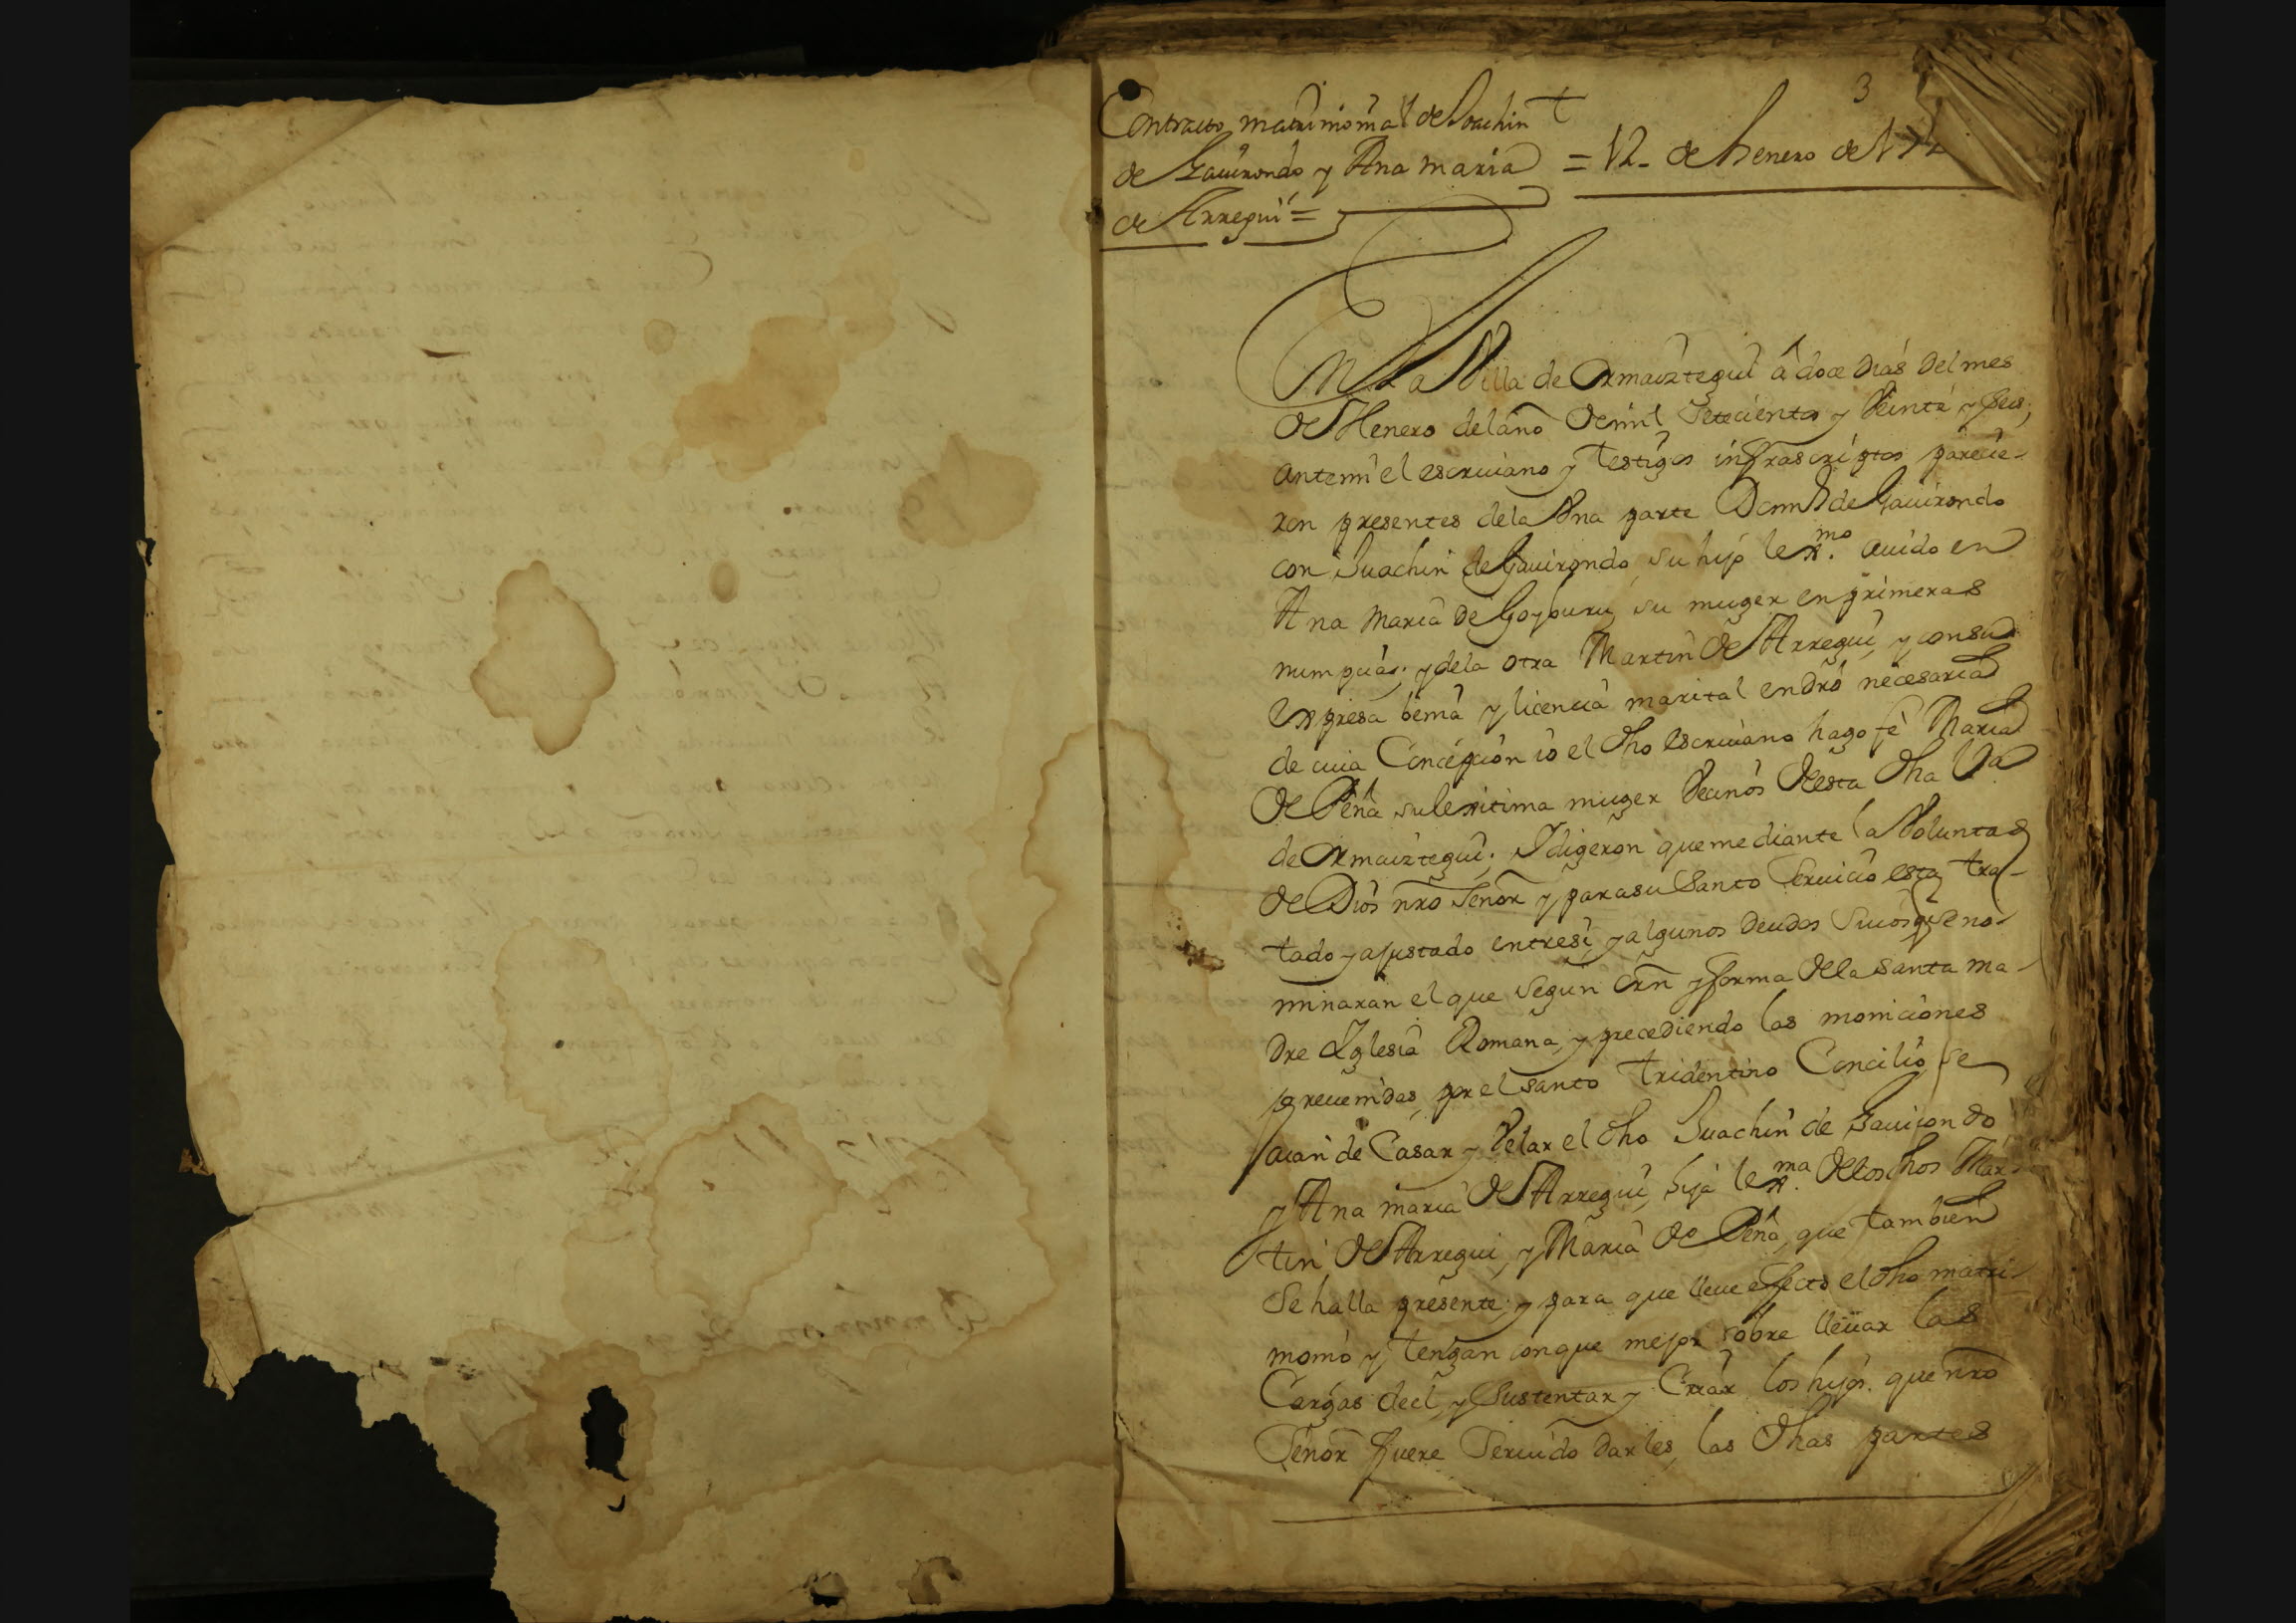 3
Contracto matrimonial de Joachin
de Gauirondo y Ana maria = 12 - de henero de 172
de Arregui =
En La Villa de Ormaiztegui â doce dias del mes
de Henero del año de mil setecientos y Veinte y seis,
ante mi el escriuano y testigos infrascriptos parecie-
ron presentes de la Vna parte Domin.º de Gauirondo
con Juachin de Gauirondo, su hijo lexmo. auido en
Ana Maria de Goyburu, su muger en primeras
numpcias; y de la otra Martin de Arregui, y con su
expresa benia y licencia marital en dro necesaria
de cuia Concepcion io el dho escriuano hago fê Maria
de Peña su lexitima muger Vecinos desta dha Va
de Ormaiztegui; Y digeron que mediante la Voluntad
de Dios nro Señor y para su Santo Seruicio esta tra-
tado y ajustado entre si, y algunos deudos suios q se no-
minaran el que segun orn y forma de la santa ma-
dre Yglesia Romana, y precediendo las moniciones
preuenidas, por el santo tridentino Concilio, se
aian de Casar y Velar el dho Juachin de Gauirondo
y Ana maria de Arregui, hija lexma. de los dhos Mar-
tin de Arregui, y Maria de Peña, que tambien
se halla presente; y para que lleue effecto el dho matri-
monio y tengan con que mejor sobre lleuar las
Cargas de el, y sustentar y Criar los hijos que nro
Señor fuere Seruido darles, las dhas partes